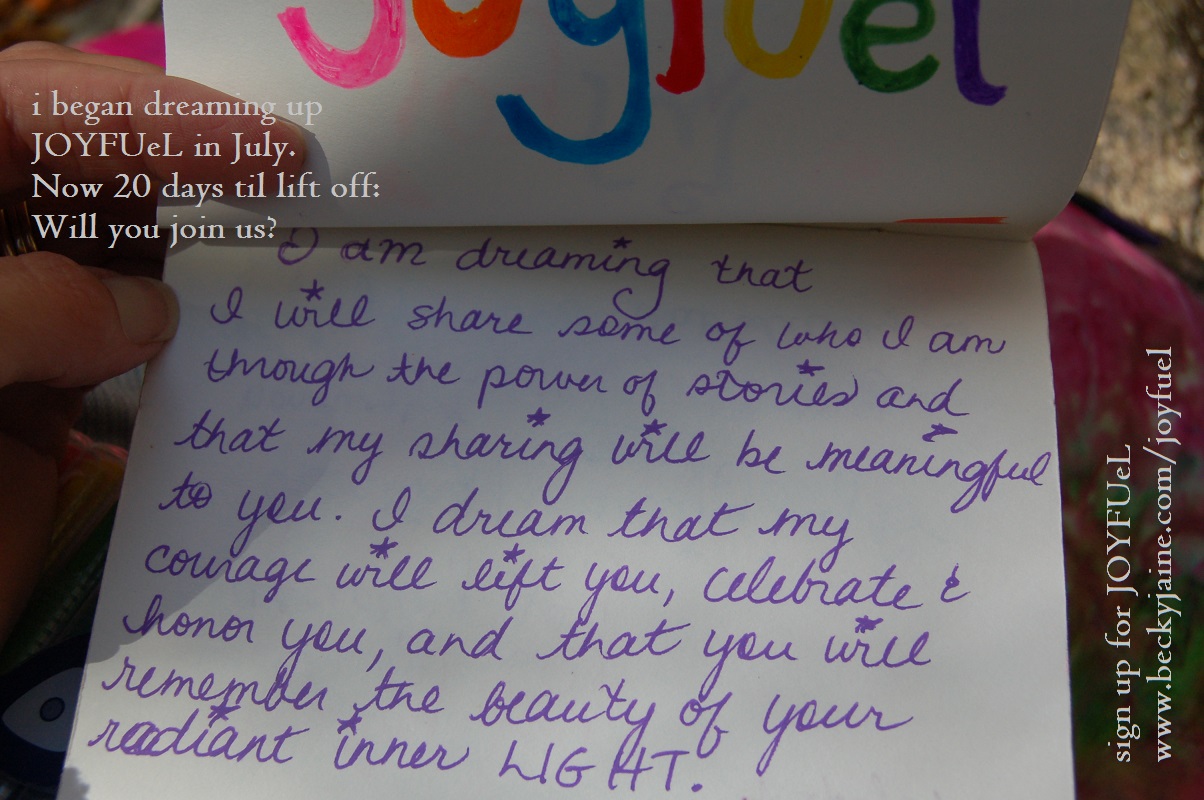 Joyfuel
i began dreaming up
JOYFUeL in July.
Now 20 days til lift off:
Will you join us?
I am dreaming that
I will share some of who I am
through the power of stories and
that my sharing will be meaningful
to you. I dream that my
courage will lift you, celebrate &
honor you, and that you will
remember the beauty of your
radiant inner LIGHT.
sign up for JOYFUeL
www.beckyjaine.com/joyfuel